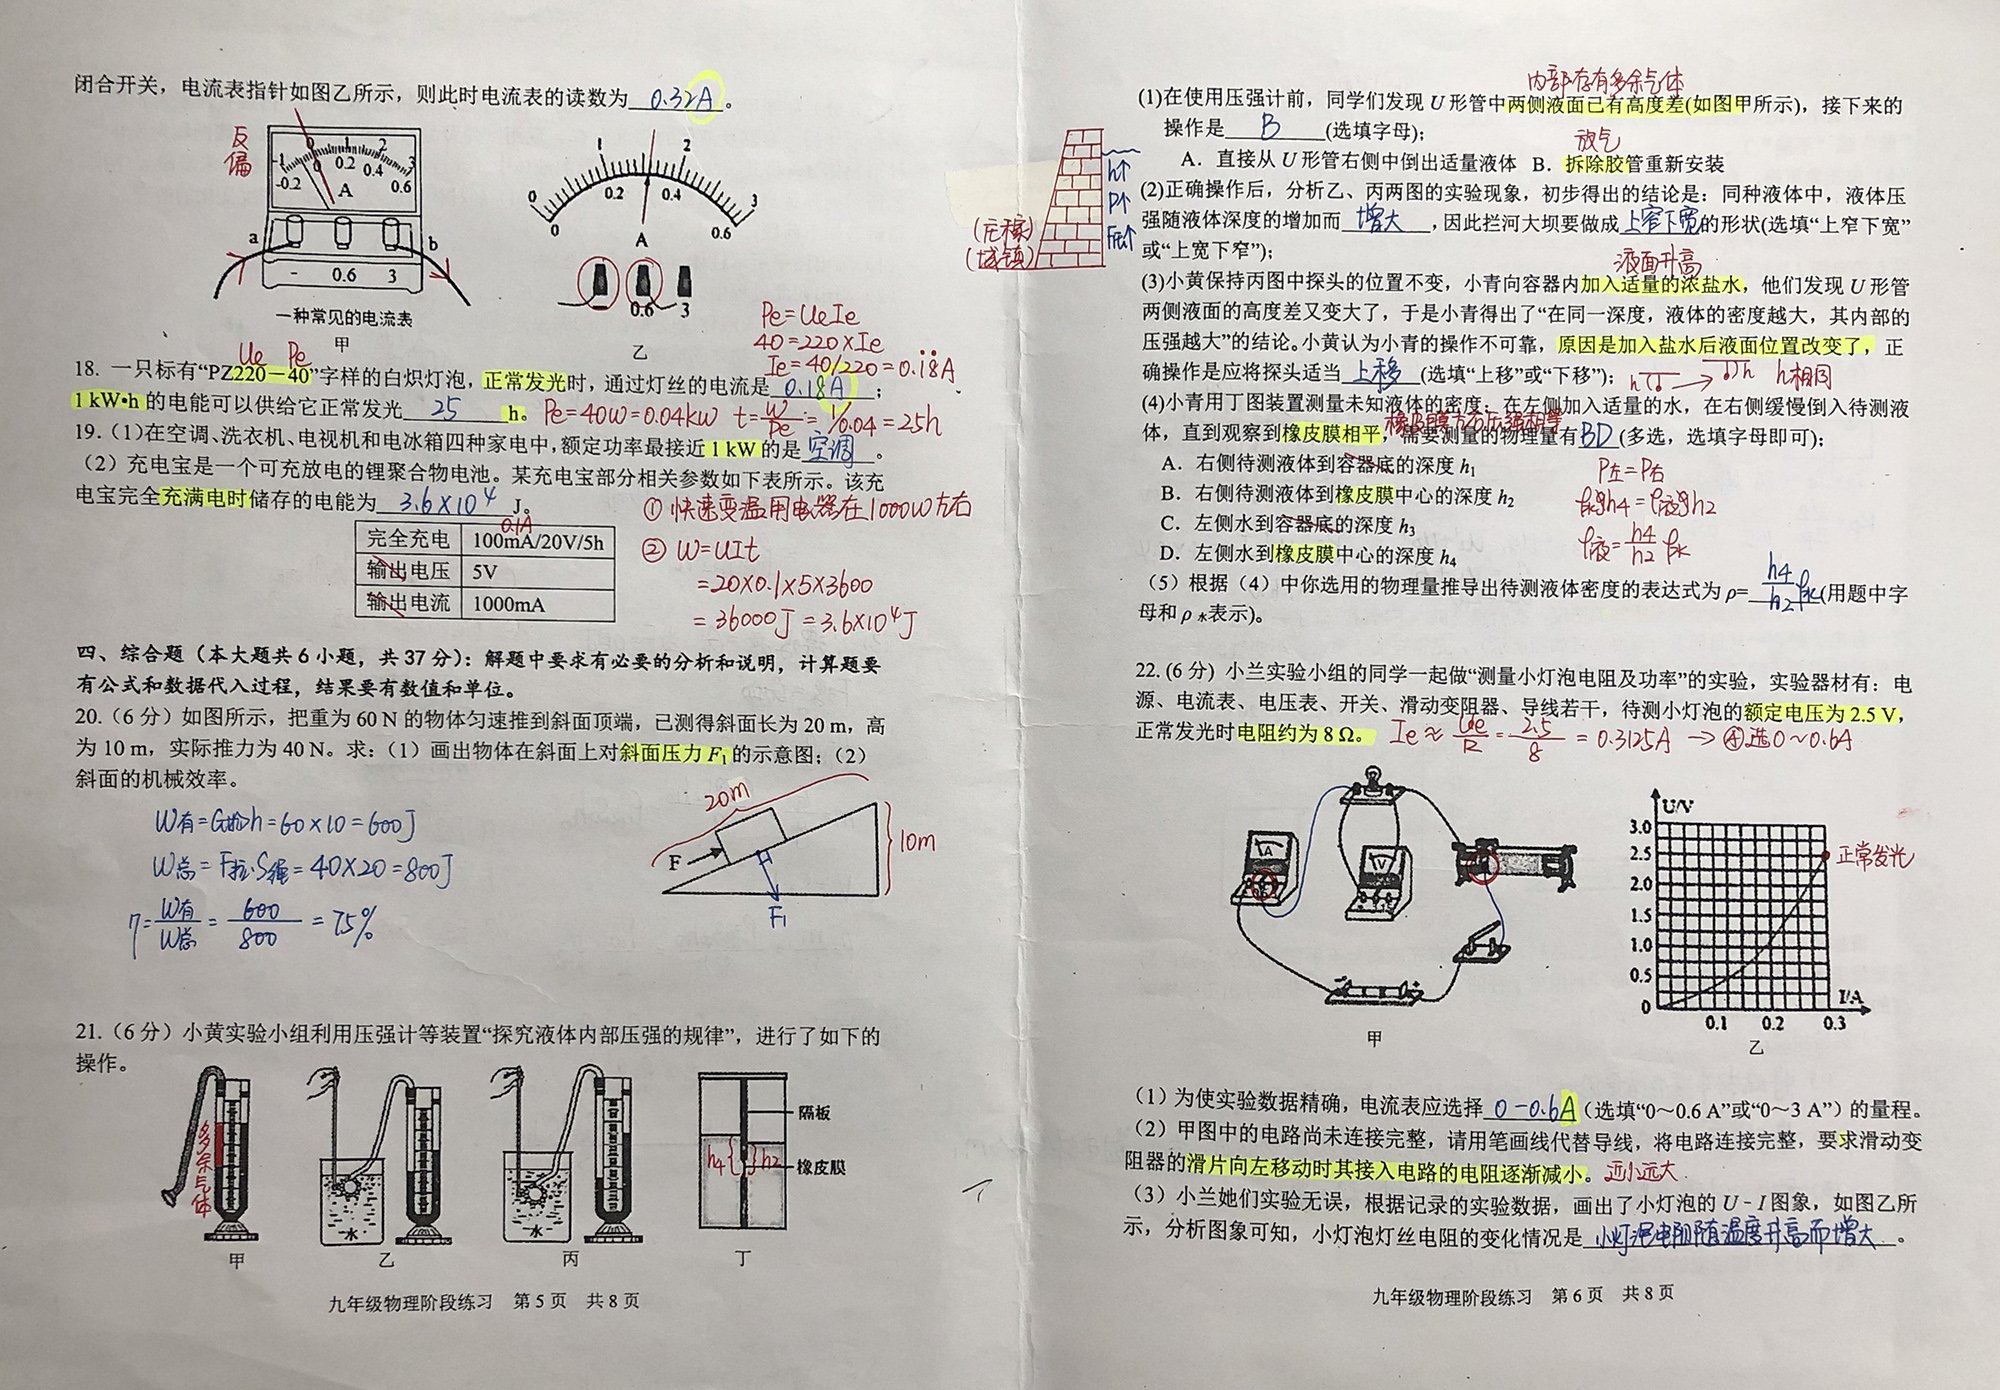 闭合开关，电流表指针如图乙所示，则此时电流表的读数为 0.32A 。
反偏
-1 0 1 2 3
-0.2 0 0.2 0.4 0.6
A
a b
- 0.6 3
一种常见的电流表
甲
0 1 2 3
0 0.2 0.4 0.6
A
- 0.6 3
乙
Pe=UeIe
40=220×Ie
Ie=40/220=0.1̇8̇A
Ue Pe
18. 一只标有“PZ220－40”字样的白炽灯泡，正常发光时，通过灯丝的电流是 0.18A ；
1 kW•h 的电能可以供给它正常发光 25 h。 Pe=40W=0.04kW t=W/Pe=1/0.04=25h
19.（1）在空调、洗衣机、电视机和电冰箱四种家电中，额定功率最接近 1 kW 的是 空调 。
（2）充电宝是一个可充放电的锂聚合物电池。某充电宝部分相关参数如下表所示。该充
电宝完全充满电时储存的电能为 3.6×10⁴ J。
0.1A
完全充电 100mA/20V/5h
输出电压 5V
输出电流 1000mA
① 快速变温用电器在1000W左右
② W=UIt
=20×0.1×5×3600
=36000J=3.6×10⁴J
四、综合题（本大题共 6 小题，共 37 分）：解题中要求有必要的分析和说明，计算题要
有公式和数据代入过程，结果要有数值和单位。
20.（6 分）如图所示，把重为 60 N 的物体匀速推到斜面顶端，已测得斜面长为 20 m，高
为 10 m，实际推力为 40 N。求：（1）画出物体在斜面上对斜面压力 F₁ 的示意图；（2）
斜面的机械效率。
W有=G物h=60×10=600J
W总=F拉·S绳=40×20=800J
η=W有/W总=600/800=75%
20m
10m
F
F₁
21.（6 分）小黄实验小组利用压强计等装置“探究液体内部压强的规律”，进行了如下的
操作。
多余气体
水
水
隔板
橡皮膜
h4 h2
甲 乙 丙 丁
九年级物理阶段练习 第 5 页 共 8 页
内部存有多余气体
(1)在使用压强计前，同学们发现 U 形管中两侧液面已有高度差(如图甲所示)，接下来的
操作是 B (选填字母)；
放气
A．直接从 U 形管右侧中倒出适量液体 B．拆除胶管重新安装
(2)正确操作后，分析乙、丙两图的实验现象，初步得出的结论是：同种液体中，液体压
强随液体深度的增加而 增大 ，因此拦河大坝要做成 上窄下宽 的形状(选填“上窄下宽”
或“上宽下窄”)；
h↑
P↑
F压↑
(庄稼)
(城镇)
液面升高
(3)小黄保持丙图中探头的位置不变，小青向容器内加入适量的浓盐水，他们发现 U 形管
两侧液面的高度差又变大了，于是小青得出了“在同一深度，液体的密度越大，其内部的
压强越大”的结论。小黄认为小青的操作不可靠，原因是加入盐水后液面位置改变了，正
确操作是应将探头适当 上移 (选填“上移”或“下移”)； h → h h相同
(4)小青用丁图装置测量未知液体的密度：在左侧加入适量的水，在右侧缓慢倒入待测液
橡皮膜左右压强相等
体，直到观察到橡皮膜相平，需要测量的物理量有 BD (多选，选填字母即可)；
A．右侧待测液体到容器底的深度 h₁
B．右侧待测液体到橡皮膜中心的深度 h₂
C．左侧水到容器底的深度 h₃
D．左侧水到橡皮膜中心的深度 h₄
P左=P右
ρ水gh4=ρ液gh2
ρ液=h4/h2 ρ水
（5）根据（4）中你选用的物理量推导出待测液体密度的表达式为 ρ= h4/h2 ρ水 (用题中字
母和 ρ 水表示)。
22. (6 分）小兰实验小组的同学一起做“测量小灯泡电阻及功率”的实验，实验器材有：电
源、电流表、电压表、开关、滑动变阻器、导线若干，待测小灯泡的额定电压为 2.5 V，
正常发光时电阻约为 8 Ω。 Ie≈Ue/R=2.5/8=0.3125A → Ⓐ选0~0.6A
A
V
甲
U/V
3.0
2.5
2.0
1.5
1.0
0.5
0
0.1 0.2 0.3
I/A
正常发光
乙
（1）为使实验数据精确，电流表应选择 0-0.6A （选填“0～0.6 A”或“0～3 A”）的量程。
（2）甲图中的电路尚未连接完整，请用笔画线代替导线，将电路连接完整，要求滑动变
阻器的滑片向左移动时其接入电路的电阻逐渐减小。 近小远大
（3）小兰她们实验无误，根据记录的实验数据，画出了小灯泡的 U－I 图象，如图乙所
示，分析图象可知，小灯泡灯丝电阻的变化情况是 小灯泡电阻随温度升高而增大 。
九年级物理阶段练习 第 6 页 共 8 页